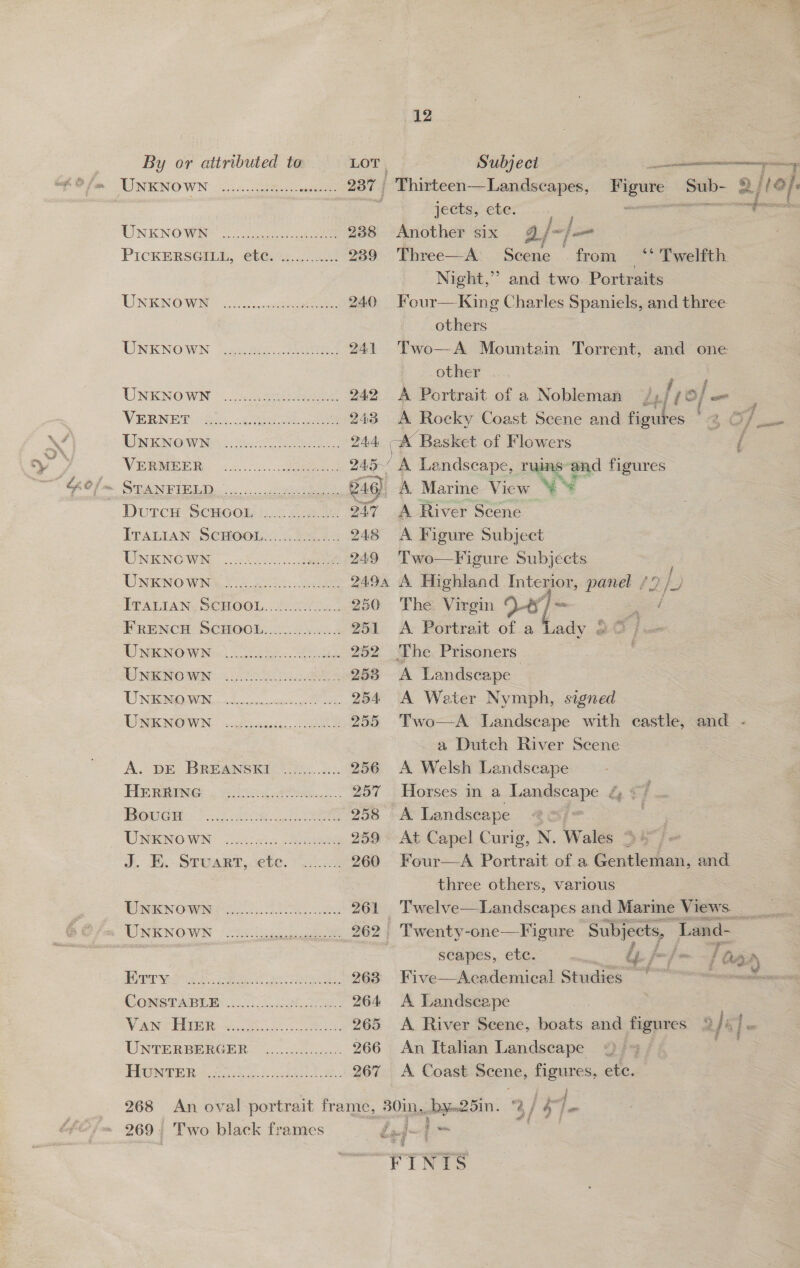 12
By or attributed to LOT Subject
UNKNOWN .......... 237 Thirteen—Landscapes, Figure Sub- 2/10/-
jects, etc.
UNKNOWN .......... 238 Another six 2/-/-
PICKERSGILL, etc. .......... 239 Three—A Scene from “Twelfth
Night,” and two Portraits
UNKNOWN .......... 240 Four—King Charles Spaniels, and three
others
UNKNOWN .......... 241 Two—A Mountain Torrent, and one
other
UNKNOWN .......... 242 A Portrait of a Nobleman
VERNET .......... 243 A Rocky Coast Scene and figures
UNKNOWN .......... 244 A Basket of Flowers
VERMEER .......... 245 A Landscape, ruins and figures
STANFIELD .......... 246 A Marine View
DUTCH SCHOOL .......... 247 A River Scene
ITALIAN SCHOOL .......... 248 A Figure Subject
UNKNOWN .......... 249 Two—Figure Subjects
UNKNOWN .......... 249A A Highland Interior, panel
ITALIAN SCHOOL .......... 250 The Virgin
FRENCH SCHOOL .......... 251 A Portrait of a Lady
UNKNOWN .......... 252 The Prisoners
UNKNOWN .......... 253 A Landscape
UNKNOWN .......... 254 A Water Nymph, signed
UNKNOWN .......... 255 Two—A Landscape with castle, and
a Dutch River Scene
A. DE BREANSKI .......... 256 A Welsh Landscape
HERRING .......... 257 Horses in a Landscape
BOUGH .......... 258 A Landscape
UNKNOWN .......... 259 At Capel Curig, N. Wales
J. E. STUART, etc. .......... 260 Four—A Portrait of a Gentleman, and
three others, various
UNKNOWN .......... 261 Twelve—Landscapes and Marine Views
UNKNOWN .......... 262 Twenty-one—Figure Subjects, Land-
scapes, etc.
ETTY .......... 263 Five—Academical Studies
CONSTABLE .......... 264 A Landscape
VAN HIER .......... 265 A River Scene, boats and figures
UNTERBERGER .......... 266 An Italian Landscape
HUNTER .......... 267 A Coast Scene, figures, etc.
268 An oval portrait frame, 30in. by 25in.
269 Two black frames
FINIS